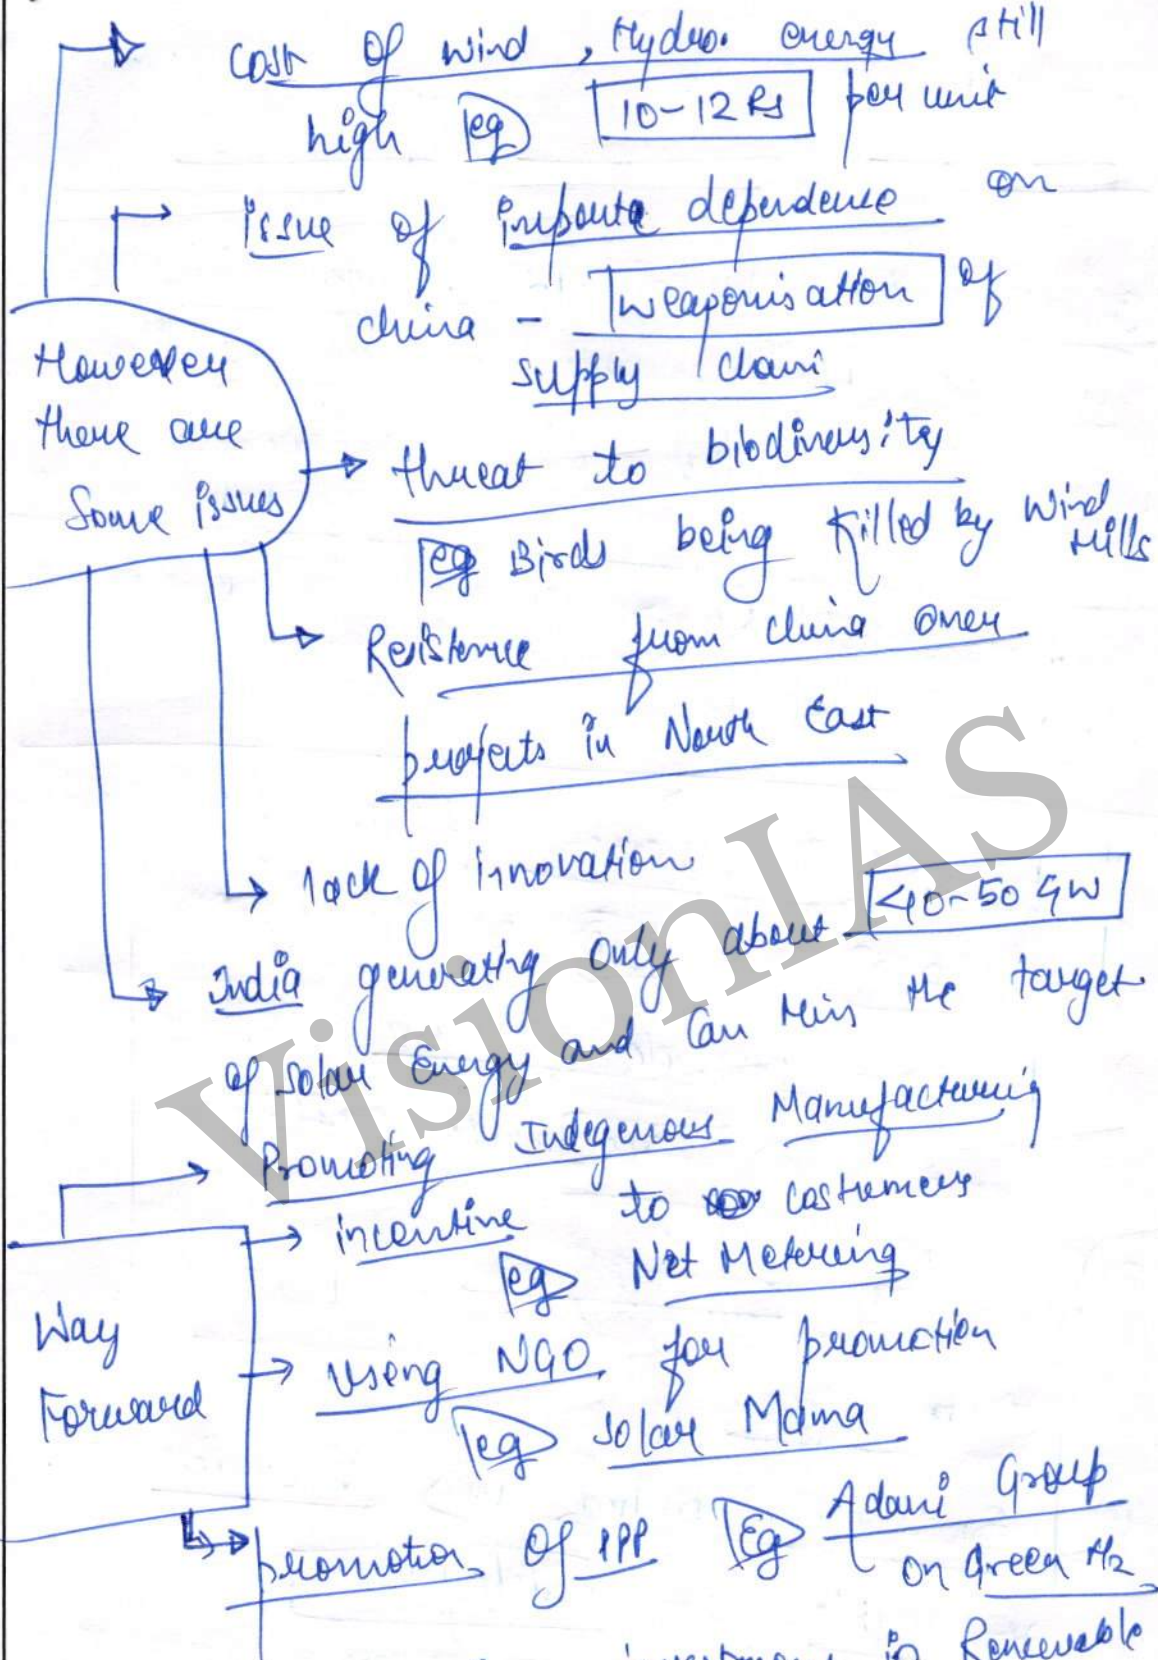 Cost of Wind, Hydro. energy still
high eg 10-12 Rs per unit
issue of imports dependence on
china - weaponisation of
supply chain
However
there are
Some issues
threat to biodiversity
eg Birds being killed by Wind
Mills
Resistence from China over
projects in North East
lack of innovation
India generating only about 40-50 GW
of Solar Energy and can miss the target
Promoting Indegenous Manufacturing
incentive to costumers
eg Net Metering
Way
Forward
Using NGO for promotion
eg Solar Mama
promotion of PPP Eg Adani Group
on Green H2
in Renewable
VisionIAS